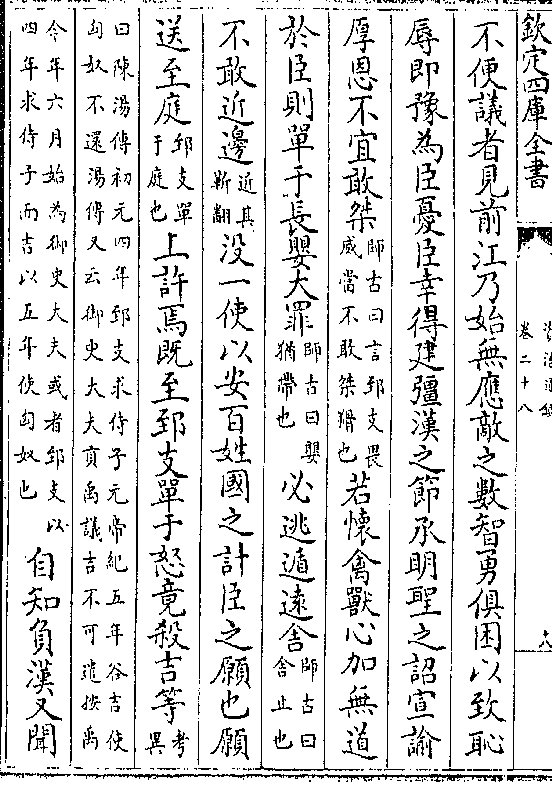 欽定四庫全書
資治通鑑
卷二十八
十八
不便議者見前江乃始無應敵之數智勇俱困以致恥
辱即豫為臣憂臣幸得建彊漢之節承明聖之詔宣諭
厚恩不宜敢桀師古曰言郅支畏威當不敢桀猾也若懷禽獸心加無道
於臣則單于長嬰大罪師古曰嬰猶帶也必逃遁遠舍師古曰舍止也
不敢近邊近其靳翻没一使以安百姓國之計臣之願也願
送至庭郅支單于庭也上許焉既至郅支單于怒竟殺吉等考異
曰陳湯傳初元四年郅支求侍子元帝紀五年谷吉使
匈奴不還湯傳又云御史大夫貢禹議吉不可遣按禹
今年六月始為御史大夫或者郅支以
四年求侍子而吉以五年使匈奴也自知負漢又聞